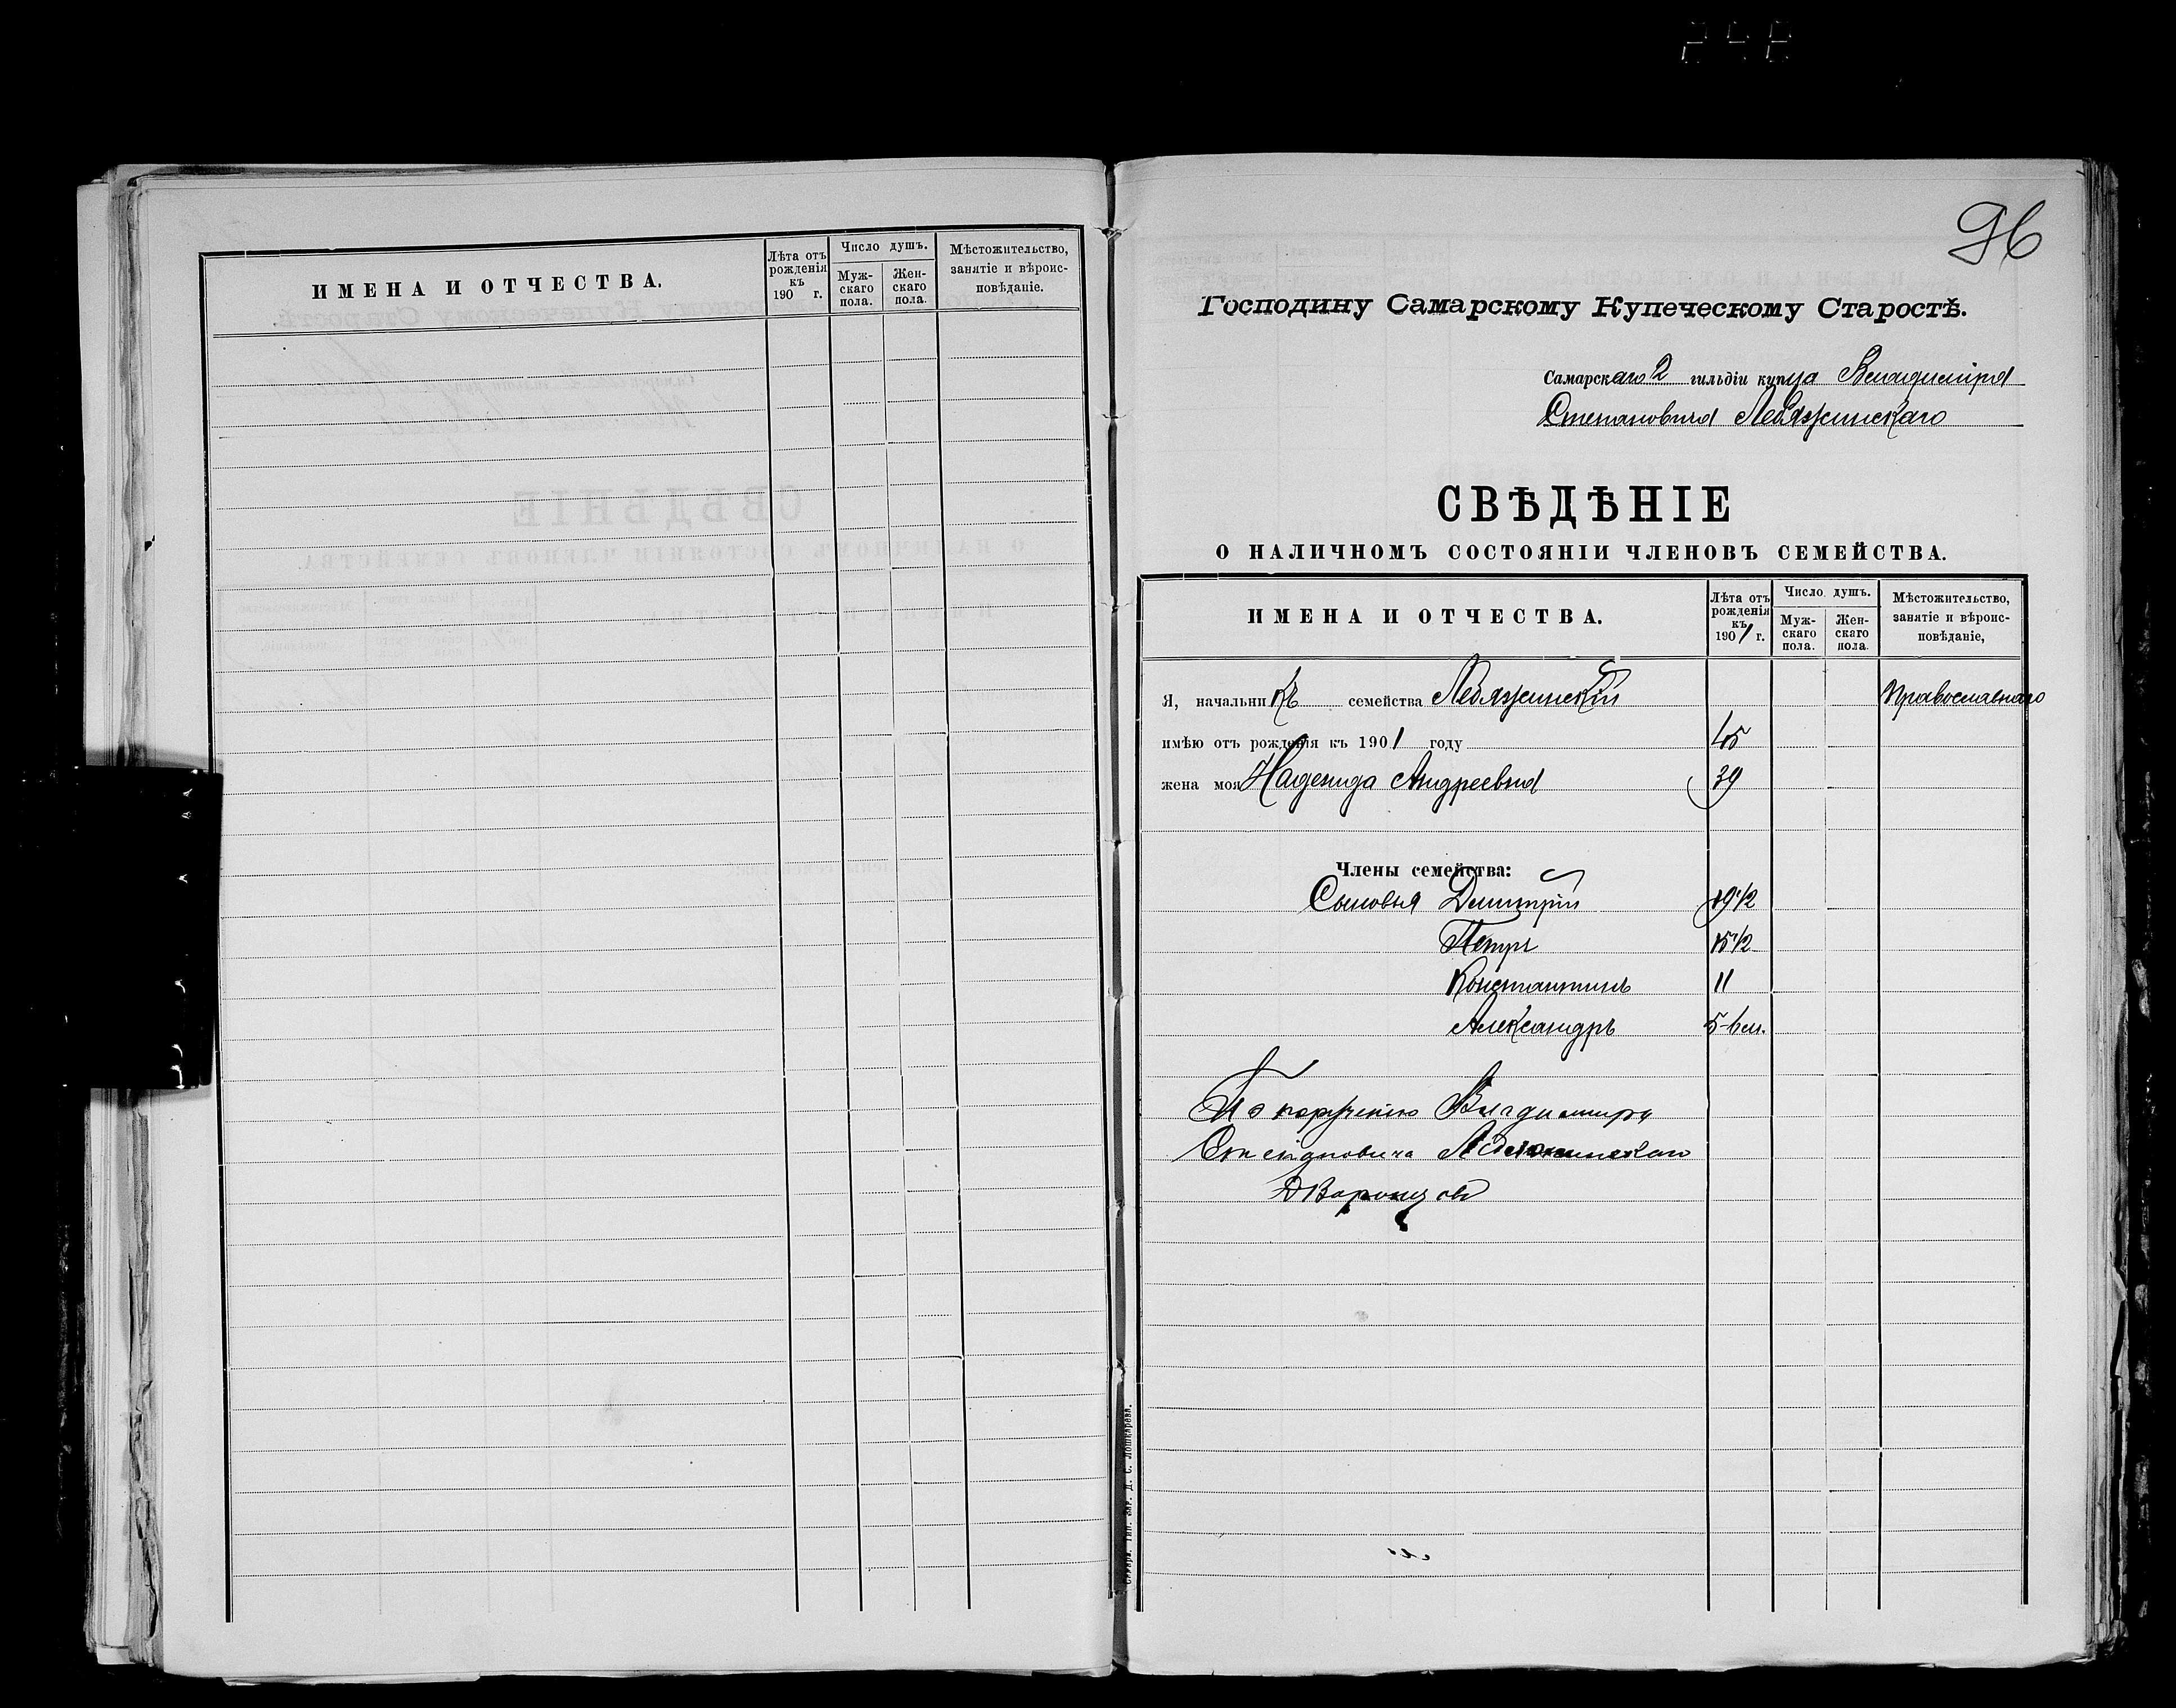 ИМЕНА И ОТЧЕСТВА.
Лѣта отъ рожденія къ 190 г.
Число душъ.
Мужскаго пола.
Женскаго пола.
Мѣстожительство, занятіе и вѣроисповѣданіе.
96
Господину Самарскому Купеческому Старостѣ.
Самарскаго 2 гильдіи купца Владиміра
Степановича Лебяжинскаго
СВѢДѢНІЕ
О НАЛИЧНОМЪ СОСТОЯНІИ ЧЛЕНОВЪ СЕМЕЙСТВА.
ИМЕНА И ОТЧЕСТВА.
Лѣта отъ рожденія къ 1901 г.
Число душъ.
Мужскаго пола.
Женскаго пола.
Мѣстожительство, занятіе и вѣроисповѣданіе,
Я, начальникъ семейства Лебяжинскій Православнаго
имѣю отъ рожденія къ 1901 году 45
жена моя Надежда Андреевна 39
Члены семейства:
Сыновья Димитрій 19 1/2
Петръ 15 1/2
Константинъ 11
Александръ
По порученію Владимира
Степановича Лебяжинскаго
Д Воронцовъ
Самара. Тип. Д. С. Лошкарева.